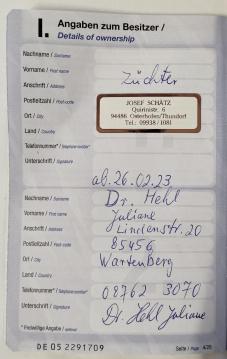 I. Angaben zum Besitzer /
Details of ownership
Nachname / Surname
Vorname / First name
Züchter
Anschrift / Address
Postleitzahl / Post-code
JOSEF SCHÄTZ
Quirinstr. 6
94486 Osterhofen/Thundorf
Tel.: 09938/1081
Ort / City
Land / Country
Telefonnummer* / Telephone number*
Unterschrift / Signature
ab. 26.02.23
Nachname / Surname
Dr. Hehl
Vorname / First name
Juliane
Anschrift / Address
Lindenstr. 20
Postleitzahl / Post-code
85456
Ort / City
Wartenberg
Land / Country
Telefonnummer* / Telephone number*
08762 3070
Unterschrift / Signature
Dr. Hehl Juliane
* Freiwillige Angabe / optional
DE 05 2291709
Seite / Page 4/28